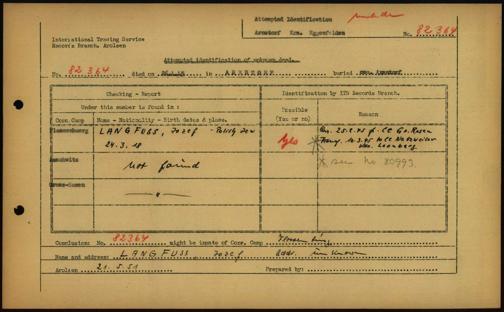 Attempted Identification
Arnstorf Krs. Eggenfelden
No. 82364
International Tracing Service
Records Branch. Arolsen
Attempted identification of unknown dead.
No. 82 364 died on in buried
Checking - Report
Identification by ITS Records Branch.
Under this number is found in:
Possible (Yes or no)
Reason
Conc. Camp
Name - Nationality - Birth dates & place.
Flossenbürg
LANGFUSS, Josef - Polish Jew
24.3.18
Yes
Arr. 25.2.45 f. CC Go. Rosen
Trans. 16.3.45 to CC Natzweiler
Leonberg
Auschwitz
not found
see No 80993
Gross-Rosen
- " -
Conclusion: No. 82364 might be inmate of Conc. Camp Flossenbürg
Name and address: LANGFUSS, Josef addr. unknown
Arolsen 21.5.51 Prepared by: